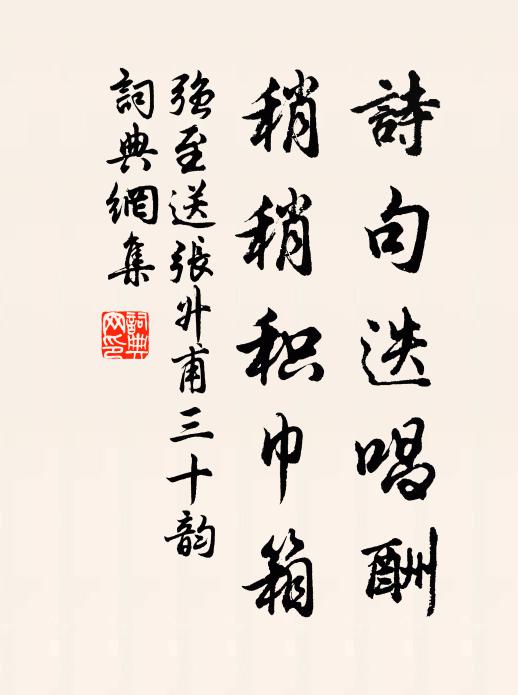 詩句迭唱酬
稍稍积巾箱
強至送張升甫三十韵
詞典網集
詞典网印